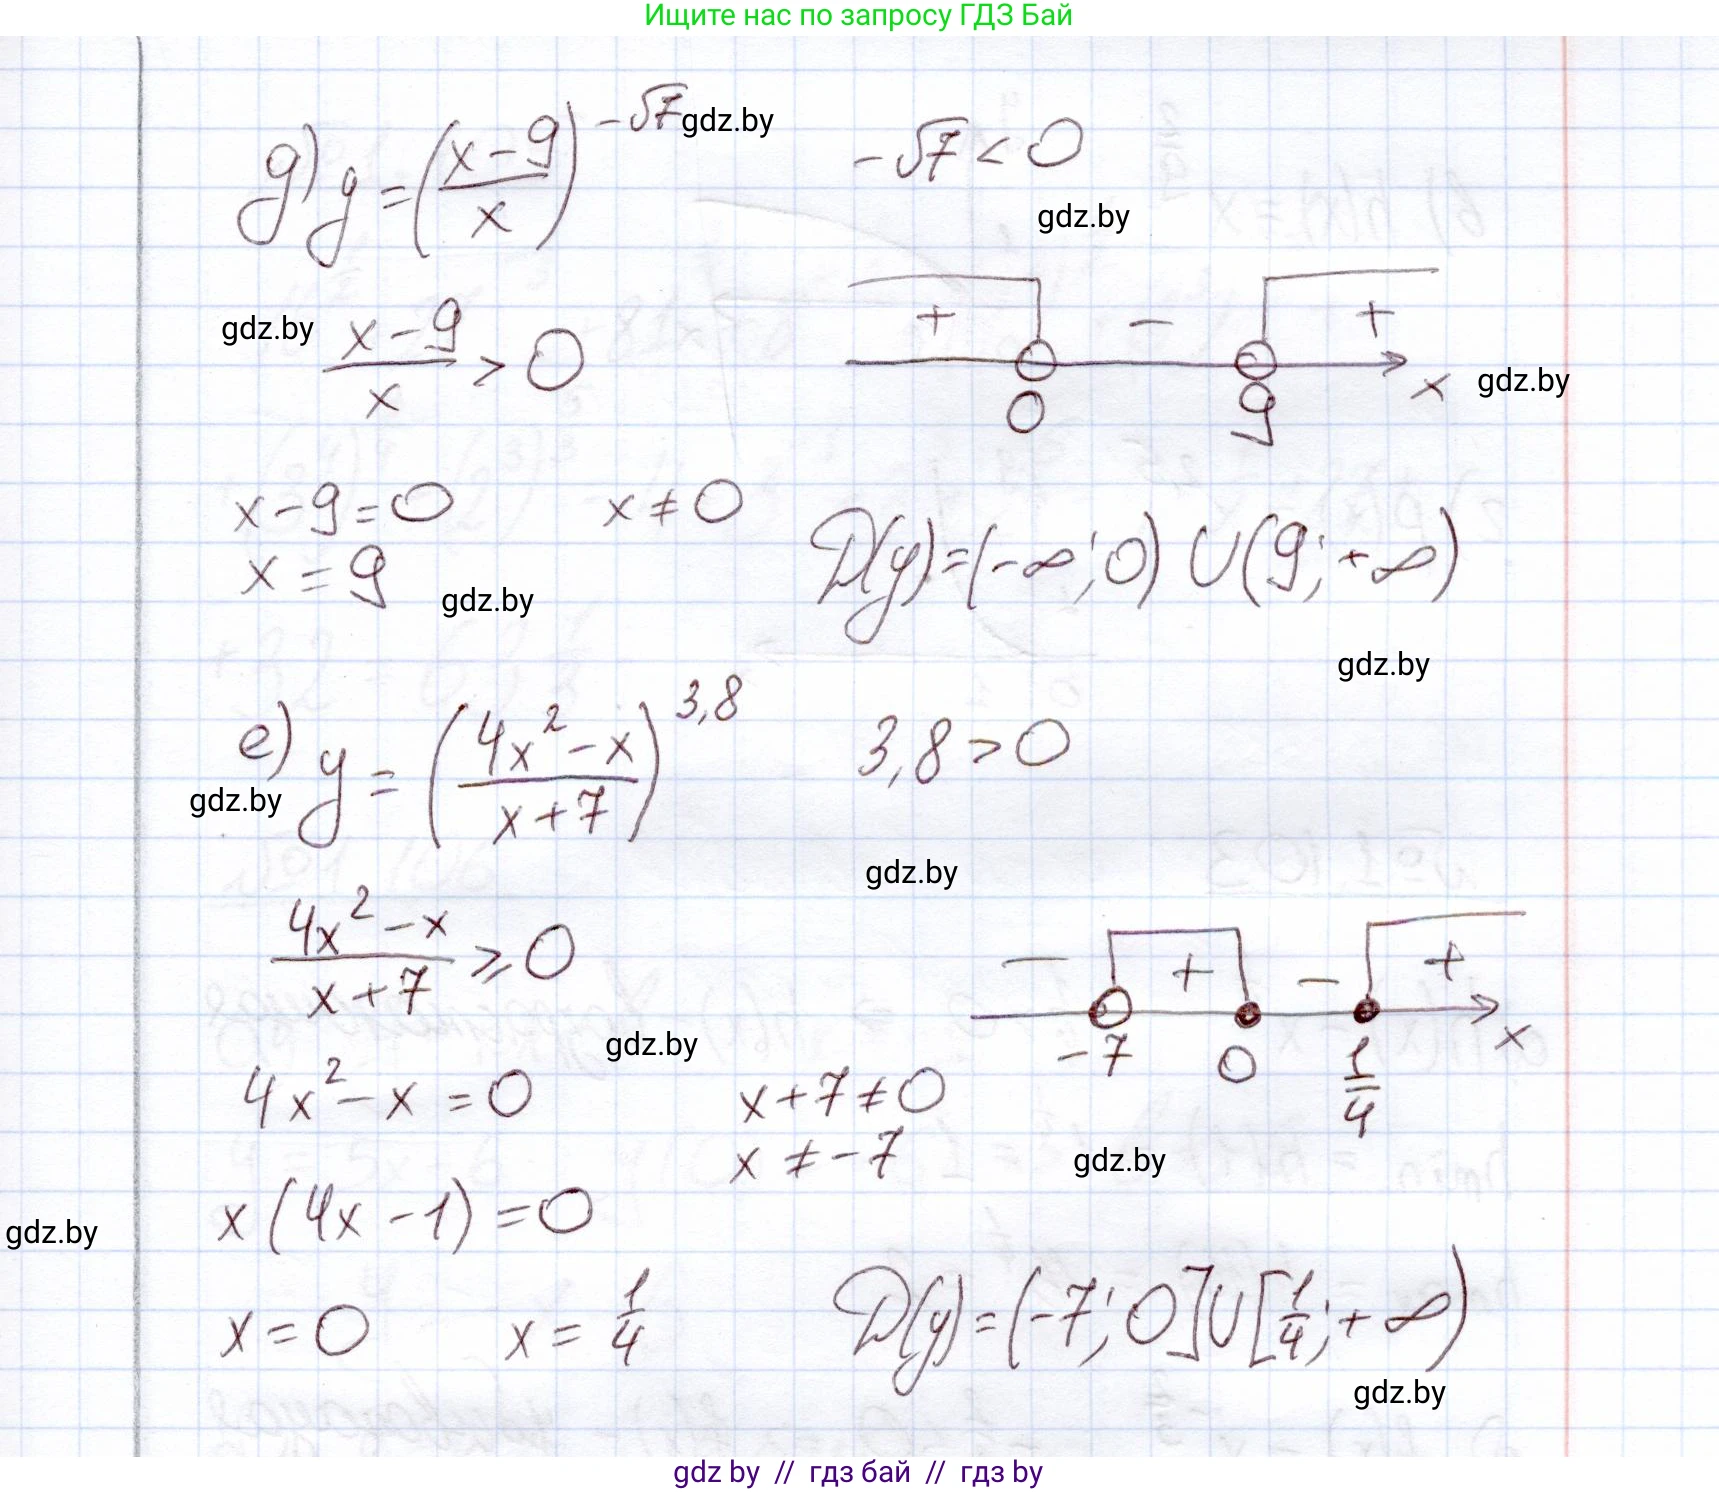 Ищите нас по запросу ГДЗ Бай
д) y = ((x-9)/x)^(-√7) gdz.by
-√7 < 0
gdz.by
gdz.by (x-9)/x > 0
+ - +
0 9 x gdz.by
x-9=0 x≠0
x = 9
gdz.by
D(y)=(-∞;0) ∪ (9;+∞)
gdz.by
е) y = ((4x²-x)/(x+7))^(3,8)
3,8 > 0
gdz.by
gdz.by
(4x²-x)/(x+7) ≥ 0
- + - +
-7 0 1/4 x
gdz.by
4x²-x = 0 x+7≠0
x ≠ -7
gdz.by
x(4x-1)=0
gdz.by
x = 0 x = 1/4
D(y)=(-7;0]∪[1/4;+∞)
gdz.by
gdz by // гдз бай // гдз by